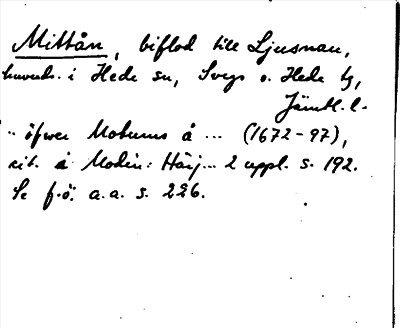 Mittån, biflod till Ljusnan,
huvuds. i Hede sn, Svegs o. Hede tg,
Jämtl. l.
".. öfwer Motums å ... (1672-97),
cit. i Modin: Härj... 2 uppl. s. 192.
Se f.ö. a.a. s. 226.